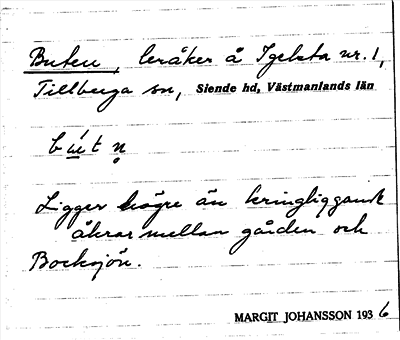 Buten, leråker å Igelsta nr. 1,
Tillberga sn, Siende hd, Västmanlands län
bút n̥
Ligger högre än kringliggande
åkrar mellan gården och
Bocksjön.
MARGIT JOHANSSON 1936